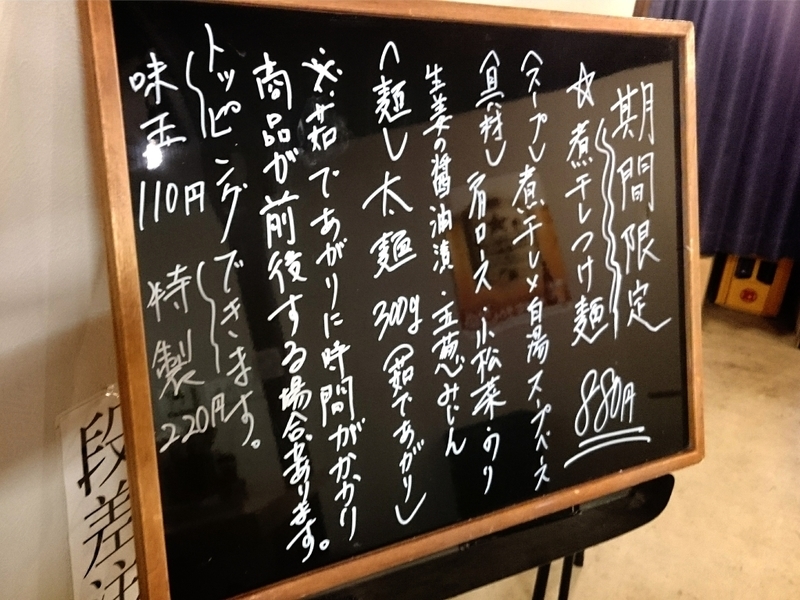 期間限定
☆煮干しつけ麺 880円
(スープ)煮干し×白湯スープベース
(具材)肩ロース・小松菜・のり
生姜の醤油漬・玉葱みじん
(麺)太麺 300g(茹であがり)
※茹であがりに時間がかかり
商品が前後する場合あります。
トッピングできます。
味玉 110円 特製 220円
段差注